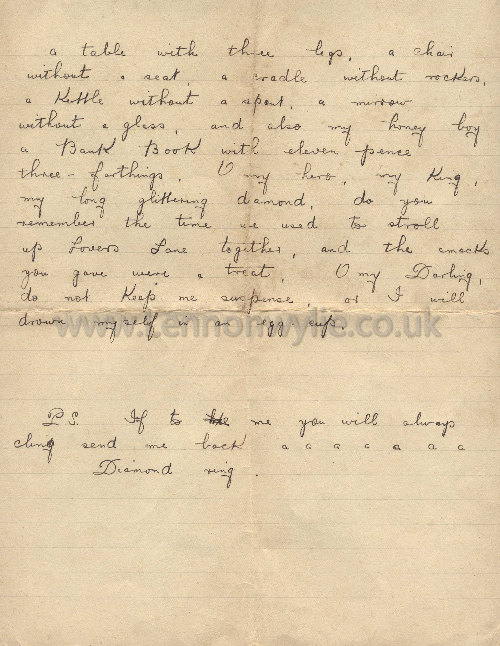 a table with three legs, a chair
without a seat, a cradle without rockers,
a Kettle without a spout, a mirrow
without a glass, and also my honey boy
a Bank Book with eleven pence
three-farthings. O my hero, my King,
my long glittering diamond, do you
remember the time we used to stroll
up Lovers Lane together, and the smacks
you gave were a treat, O my Darling,
do not Keep me suspense, or I will
drown myself in an egg cup.
www.lennonwylie.co.uk
P.S. If to me you will always
cling send me back a a a a a a a
Diamond ring.